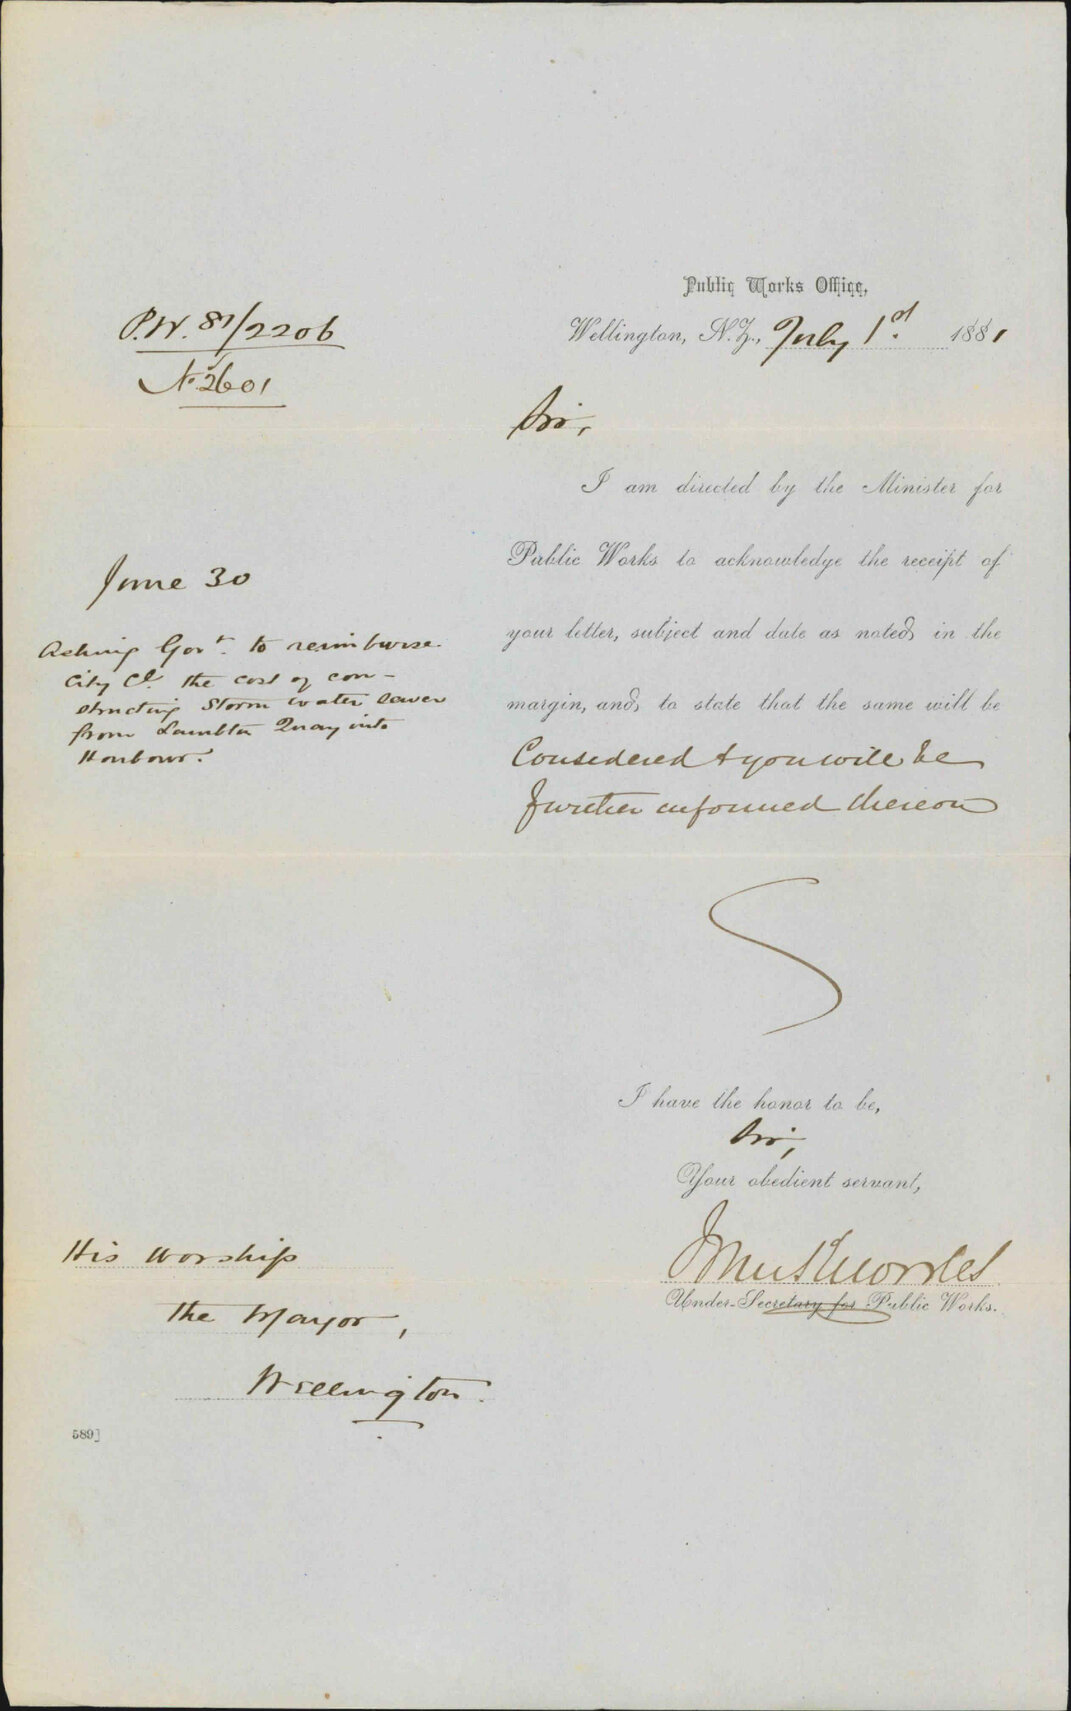 Public Works Office,
Wellington, N.Z., July 1st. 1881
P.W. 81/2206
No. 2601
Sir,
I am directed by the Minister for
Public Works to acknowledge the receipt of
your letter, subject and date as noted in the
margin, and to state that the same will be
Considered & you will be
further informed thereon
June 30
Asking Govt. to reimburse
City Cl. the cost of con-
structing Storm water sewer
from Lambton Quay into
Harbour.
I have the honor to be,
Sir,
Your obedient servant,
Under-Secretary for Public Works.
His Worship
The Mayor,
Wellington.
589]